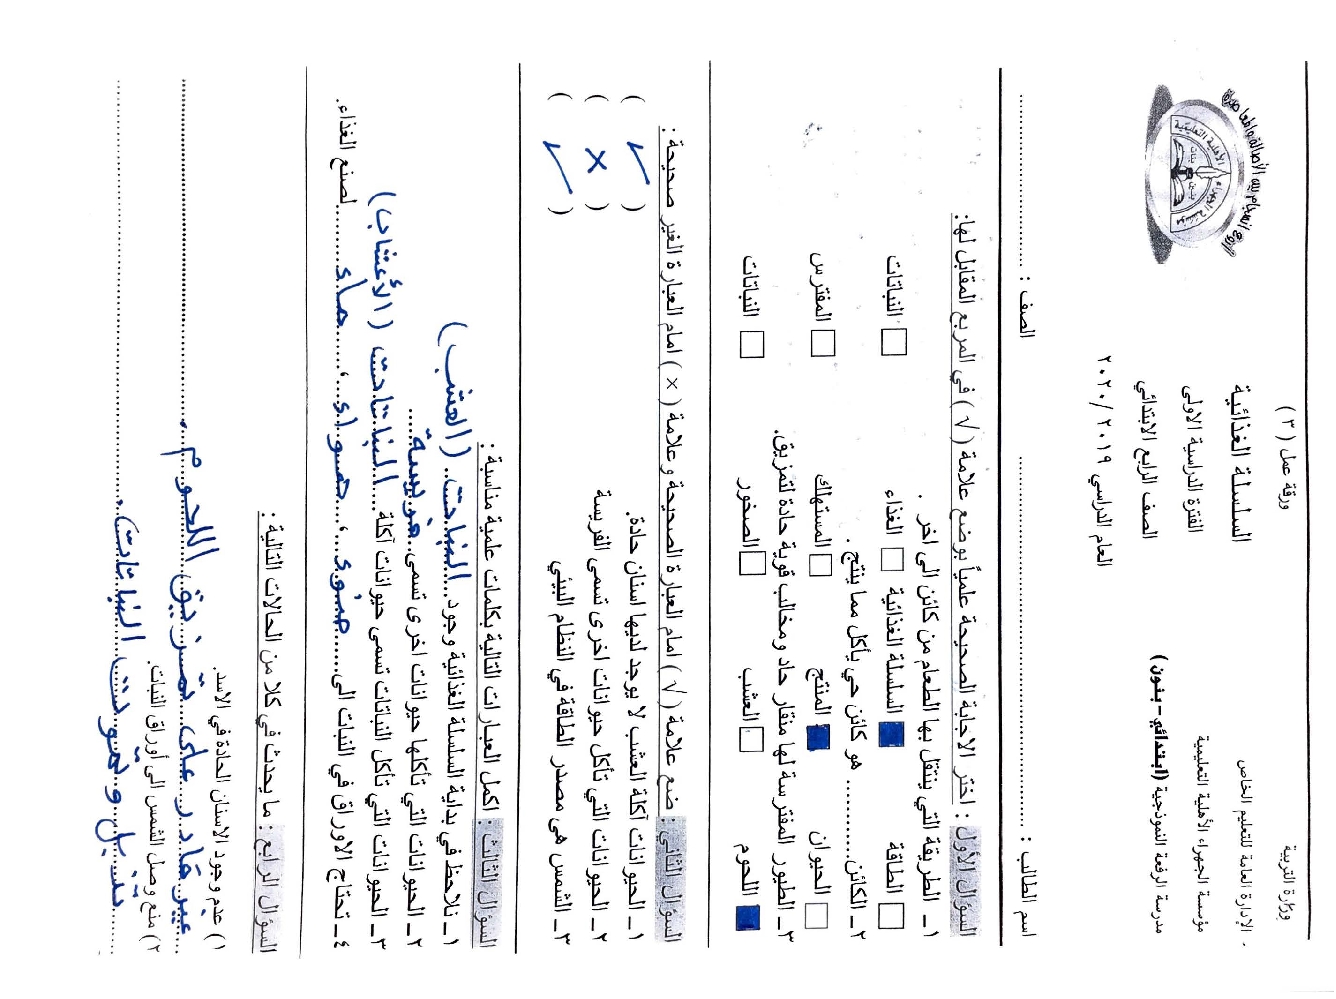 وزارة التربية
الإدارة العامة للتعليم الخاص
مؤسسة الجهراء الأهلية التعليمية
مدرسة الرفعة النموذجية (ابتدائي - بنون)
ورقة عمل ( ٣ )
السلسلة الغذائية
الفترة الدراسية الاولى
الصف الرابع الابتدائي
العام الدراسي ٢٠١٩ / ٢٠٢٠
مؤسسة الجهراء الأهلية التعليمية
اسم الطالب : ................................ الصف : ................
السؤال الأول : اختر الاجابة الصحيحة علمياً بوضع علامة ( √ ) في المربع المقابل لها:
١ ـ الطريقة التي ينتقل بها الطعام من كائن الى اخر .
الطاقة السلسلة الغذائية الغذاء النباتات
٢ ـ الكائن.......... هو كائن حي يأكل مما ينتج .
الحيوان المنتج المستهلك المفترس
٣ ـ الطيور المفترسة لها منقار حاد ومخالب قوية حادة لتمزيق.
اللحوم العشب الصخور النباتات
السؤال الثاني : ضع علامة ( √ ) امام العبارة الصحيحة و علامة ( × ) امام العبارة الغير صحيحة :
١ ـ الحيوانات آكلة العشب لا يوجد لديها اسنان حادة. ( ✓ )
٢ ـ الحيوانات التي تأكل حيوانات اخرى تسمى الفريسة ( × )
٣ ـ الشمس هي مصدر الطاقة في النظام البيئي ( ✓ )
السؤال الثالث : اكمل العبارات التالية بكلمات علمية مناسبة :
١ ـ نلاحظ في بداية السلسلة الغذائية وجود ..النباتات.. (العشب)
٢ ـ الحيوانات التي تأكلها حيوانات اخرى تسمى ..فريسة....
٣ ـ الحيوانات التي تأكل النباتات تسمى حيوانات آكلة ..النباتات (الأعشاب)
٤ ـ تحتاج الاوراق في النبات الى ....ضوء....،..هواء...،...ماء......لصنع الغذاء.
السؤال الرابع : ما يحدث في كلا من الحالات التالية :
١) عدم وجود الاسنان الحادة في الاسد.
غير قادر على تمزيق اللحوم.
٢) منع وصل الشمس الى أوراق النبات.
تذبل وتموت النباتات.